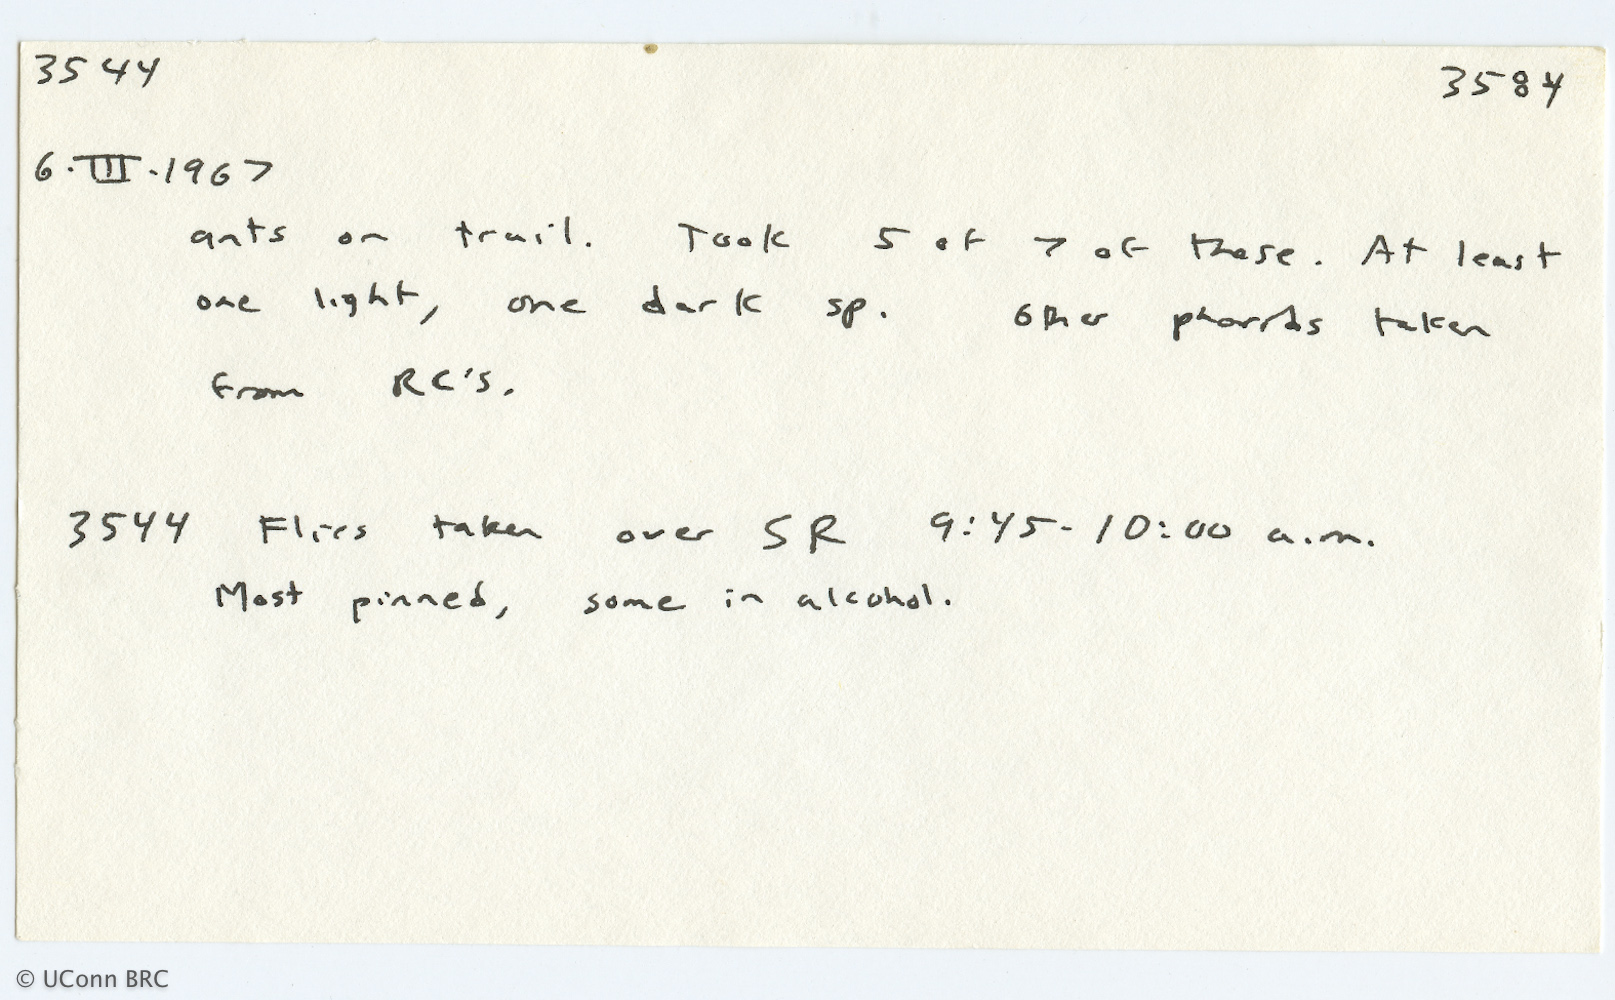 3544 3584
6.III.1967
ants on trail. Took 5 of 7 of these. At least
one light, one dark sp. Other phorids taken
from RC's.
3544 Flies taken over SR 9:45-10:00 a.m.
Most pinned, some in alcohol.
© UConn BRC